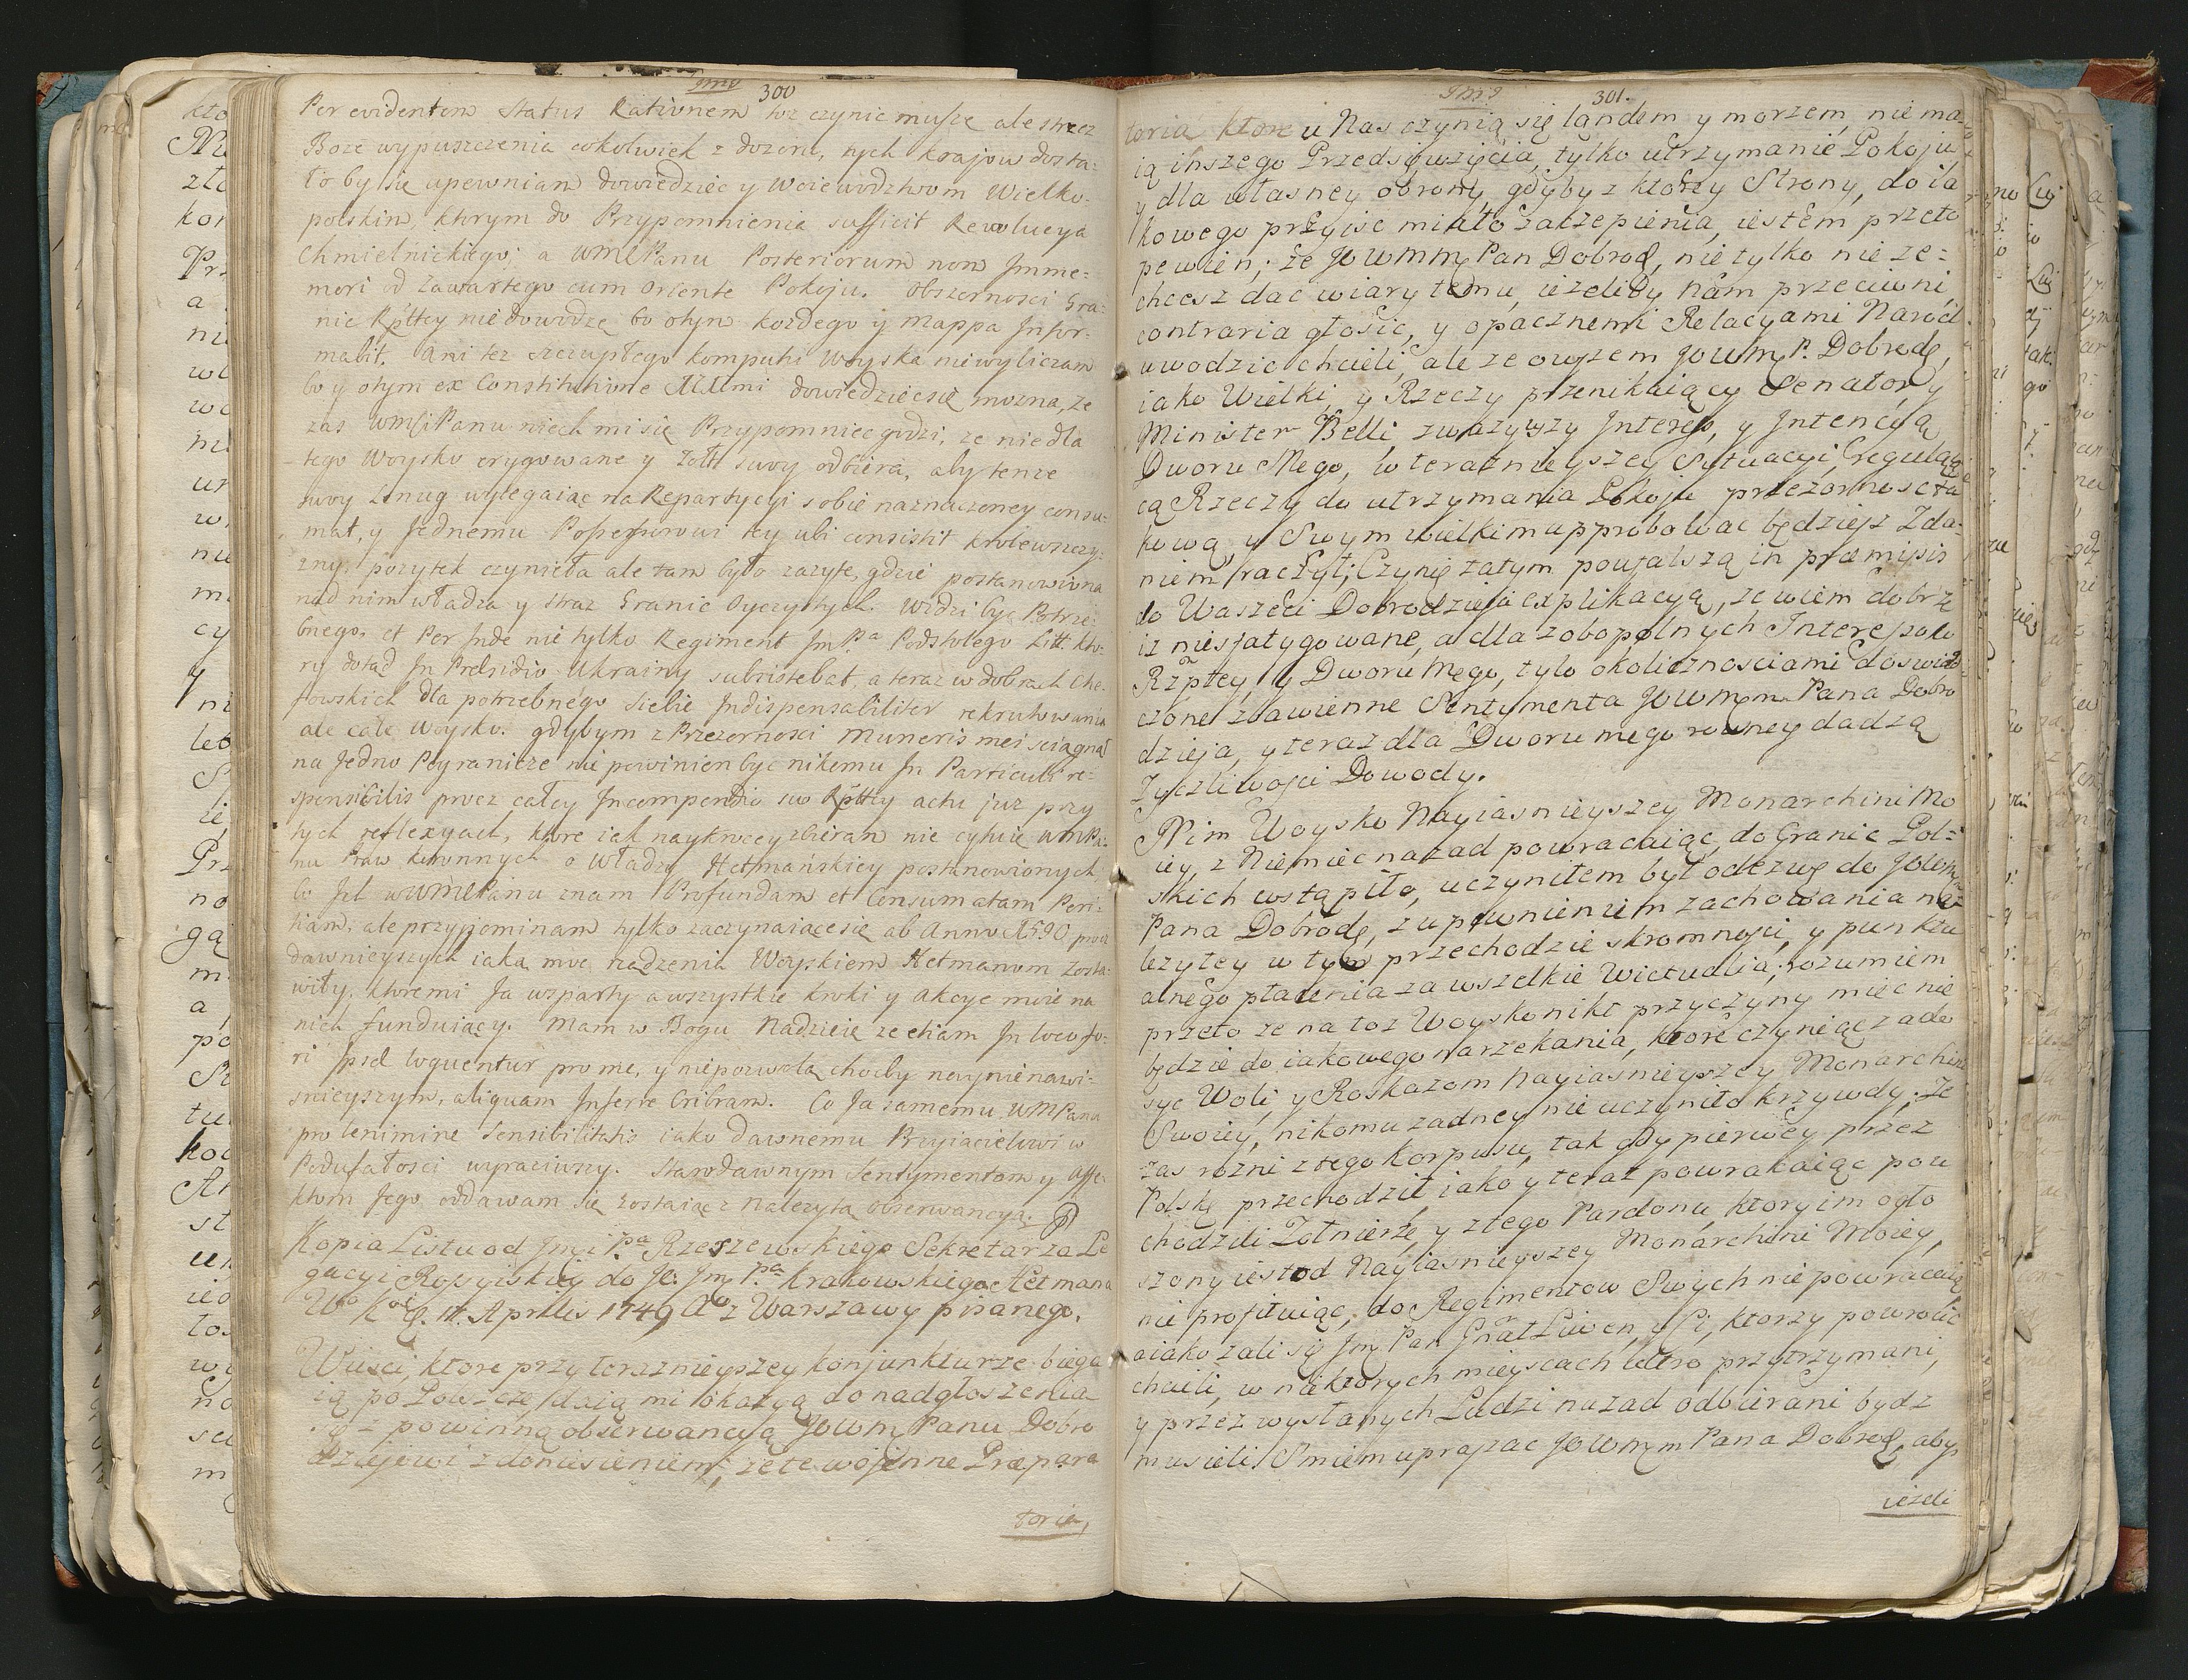 300
Per evidentem Status Rationem toż czynić muszę ale strzeż
Boże wypuszczenia cokolwiek z dozoru, tych krajow dosta-
ło by się upewniam dowiedzieć y Woiewodztwom Wielko-
polskim, ktorym do Przypomnienia sufficit Rewolucya
Chmielnickiego; a WMCPanu Posteriorum non Imme-
mori od zawartego cum Oriente Pokoju. Obszernosci Gra-
nic Rpltey nie dowodzę bo otym kożdego y Mappa Infor-
mabit. Ani tez szczupłego komputu Woyska nie wyliczam
bo y otym ex Constitutione dowiedziec się mozna, ze
zas WMCiPanu niech mi się Przypomniec godzi, ze nie dla
tego Woysko erygowane y Zołd swoy odbiera, aby tenze
swoy wylegaiąc na Repartycyi sobie naznaczoney consu-
mał, y Jednemu Possessorowi tey ubi consistit krolewszczy-
zny, pozytek czynieła ale tam było zazyte, gdzie postanowiona
nad nim władza y straz Granic Oyczystych. widzi być Potrze-
bnego, et Per Inde nie tylko Regiment Jm Pa Podstolego Litt. kto-
ry dotąd In Praesidio Ukrainy subsistebat, a teraz w dobrach Che-
towskich dla potrzebnego siebie Indispensabiliter rekrutowania
ale całe woysko. gdybym z Przezornosci Muneris mei sciągnął
na Jedno Pogranicze nie powinien być nikomu In Particulari re-
sponsibilis procz całey In compendio suo Rpltey actu juz przy
tych reflexyach, ktore iak naykrocey zbieram nie cytuię WMPa-
nu Praw koronnych o władzy Hetmańskiey postanowionych
bo Jest w WMCPanu znam Profundam et Consumatam Peri-
tiam, ale przypominam tylko zaczynaiące się ab Anno 1590 procz
dawnieyszych iaką moc rządzenia Woyskiem Hetmanom zosta-
wiły, ktoremi Ja wsparty a wszystkie kroki y Akcye moie na
nich funduiący. Mam w Bogu Nadzieię ze etiam In loco fo-
ri loquentur pro me, y niepozwolą choćby naynienawi-
snieyszym, aliquam Inferre Cribram. Co Ja samemu WMPanu
pro lenimine Sensibilitatis iako dawnemu Przyiacielowi w
Poufałosci wyraziwszy. Starodawnym Sentymentom y affe-
ktom Jego oddawam się zostaiąc z Nalezytą obserwancyą.
Kopia Listu od Jmci Pa Rzeszewskiego Sekretarza Le
gacyi Rossyiskiey do Je. Jm Pa Krakowskiego Hetmana
Wo Koo D. 11. Aprilis 1749 Ao z Warszawy pisanego.
Wiesci, ktore przy teraznieyszey konjunkturze biega
ią po Polszcze, daią mi okazyą do nadgłoszenia
się z powinną obserwancyą JoWm Panu Dobro
dziejowi z doniesieniem, ze te wojenne Præpara
toria,
301.
toria ktore u Nas czynią się landem y morzem, nie ma-
ią inszego Przedsięwzięcia, tylko utrzymanie Pokoju,
y dla własney obrony, gdyby z ktorey Strony, do ia
kowego przyisc miało zaczepienia, iestem przeto
pewien; ze JoWmm Pan Dobrod, nie tylko nie ze-
chcesz dac wiary temu, iezeliby Nam przeciwni
contraria głosic, y opacznemi Relacyami Narod
uwodzic chcieli, ale ze owszem JoWm P. Dobrodę,
iako Wielki, y Rzeczy przenikaiący Senator, y
Minister Belli, zwazywszy Interess, y Intencyą
Dworu Mego, w teraznieyszey Sytuacyi, regulaią
cą Rzeczy do utrzymania Pokoju przezornosc ta
kową, y Swym wielkim approbowac będziesz Zda-
niem raczył; Czynię zatym poufalszą in præmissis
do Waszeci Dobrodzieja explikacyą, ze wiem dobrze
iz niesfatygowane, a dla zobopolnych Interessow
Rzptey, y Dworu Mego, tylo okolicznosciami doswiad-
czone zbawienne Sentymenta JoWmm Pana Dobro
dzieja, y teraz dla Dworu mego rowney dadzą
Zyczliwosci Dowody.
Nim Woysko Nayiasnieyszey Monarchini Mo
iey, z Niemiec nazad powracaiąc, do Granic Pol-
skich wstąpiło, uczyniłem był odezwę do JoWm
Pana Dobrodę, z upewnieniem zachowania na-
lezytey w tym przechodzie skromnosci, y punktu
alnego płacenia za wszelkie Wictualia; rozumiem
przeto ze na toz Woysko nikt przyczyny miec nie
będzie do iakowego narzekania, ktore czyniąc zado
syc Woli, y Roskazom Nayiasnieyszey Monarchini
Swoiey, nikomu zadney nie uczyniło krzywdy. Ze
zas rozni z tego Korpusu, tak gdy pierwey przez
Polskę przechodził, iako y teraz powrakaiąc pou
chodzili Zołnierze, y z tego Pardonu, ktory im ogło
szony iest od Nayiasnieyszey Monarchini Moiey,
nie profituiąc, do Regimentow Swych nie powracaią
a iako zali się Jm Pan Gnał Liwen, y Ci, ktorzy powrocic
chcieli, w niektorych mieyscach przytrzymani,
y przez wysłanych Ludzi nazad odbierani bydz
musieli. Smiem upraszac JoWmm Pana Dobrod, aby
iezeli